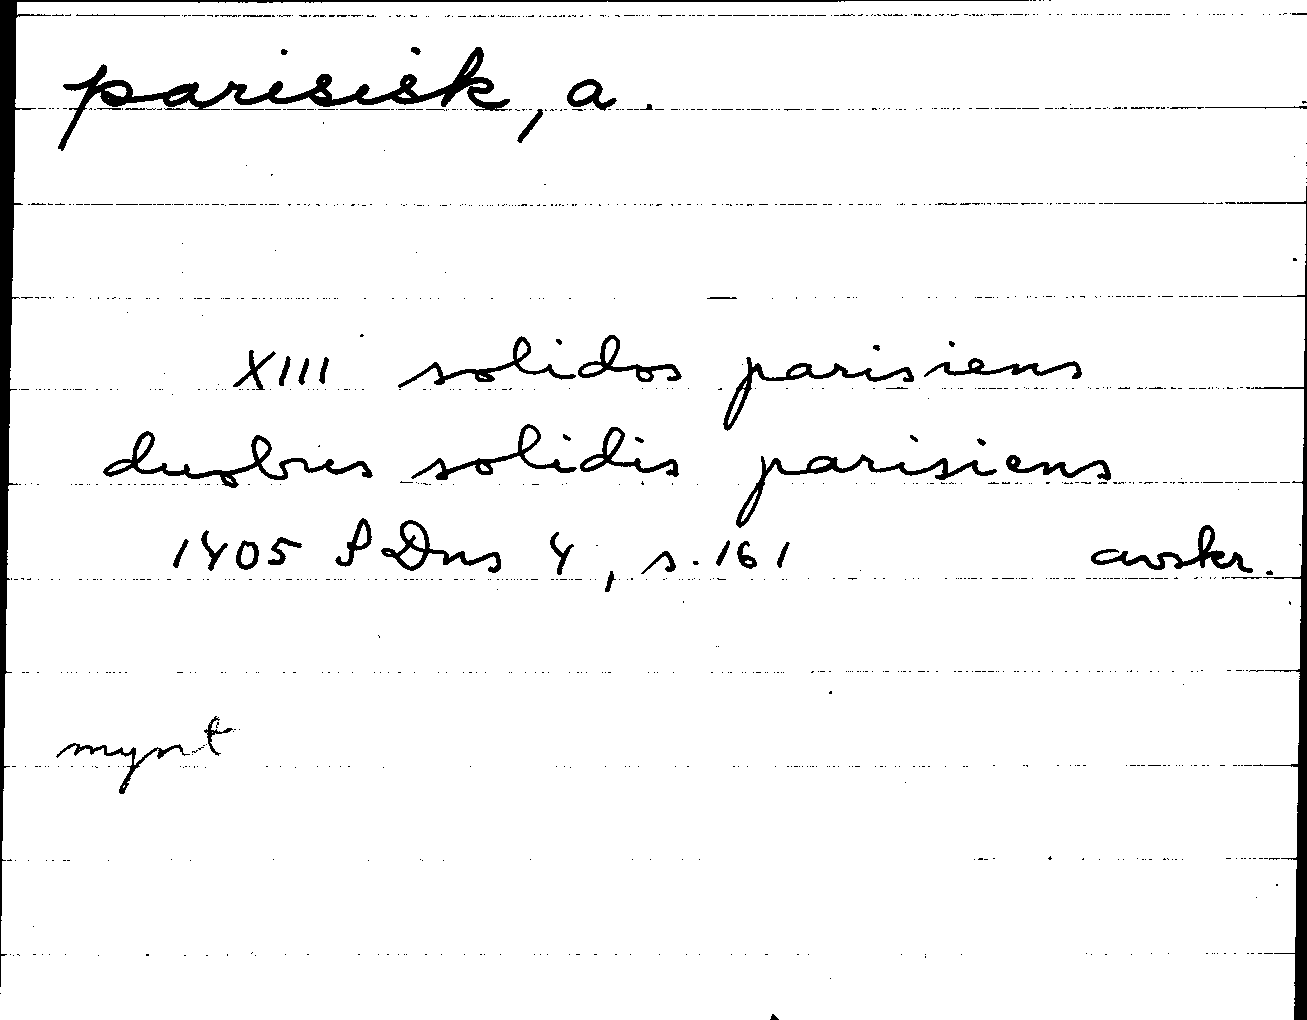 parisisk, a.
XIII solidos parisiens
duobus solidis parisiens
1405 SDns 4, s. 161 avskr.
mynt